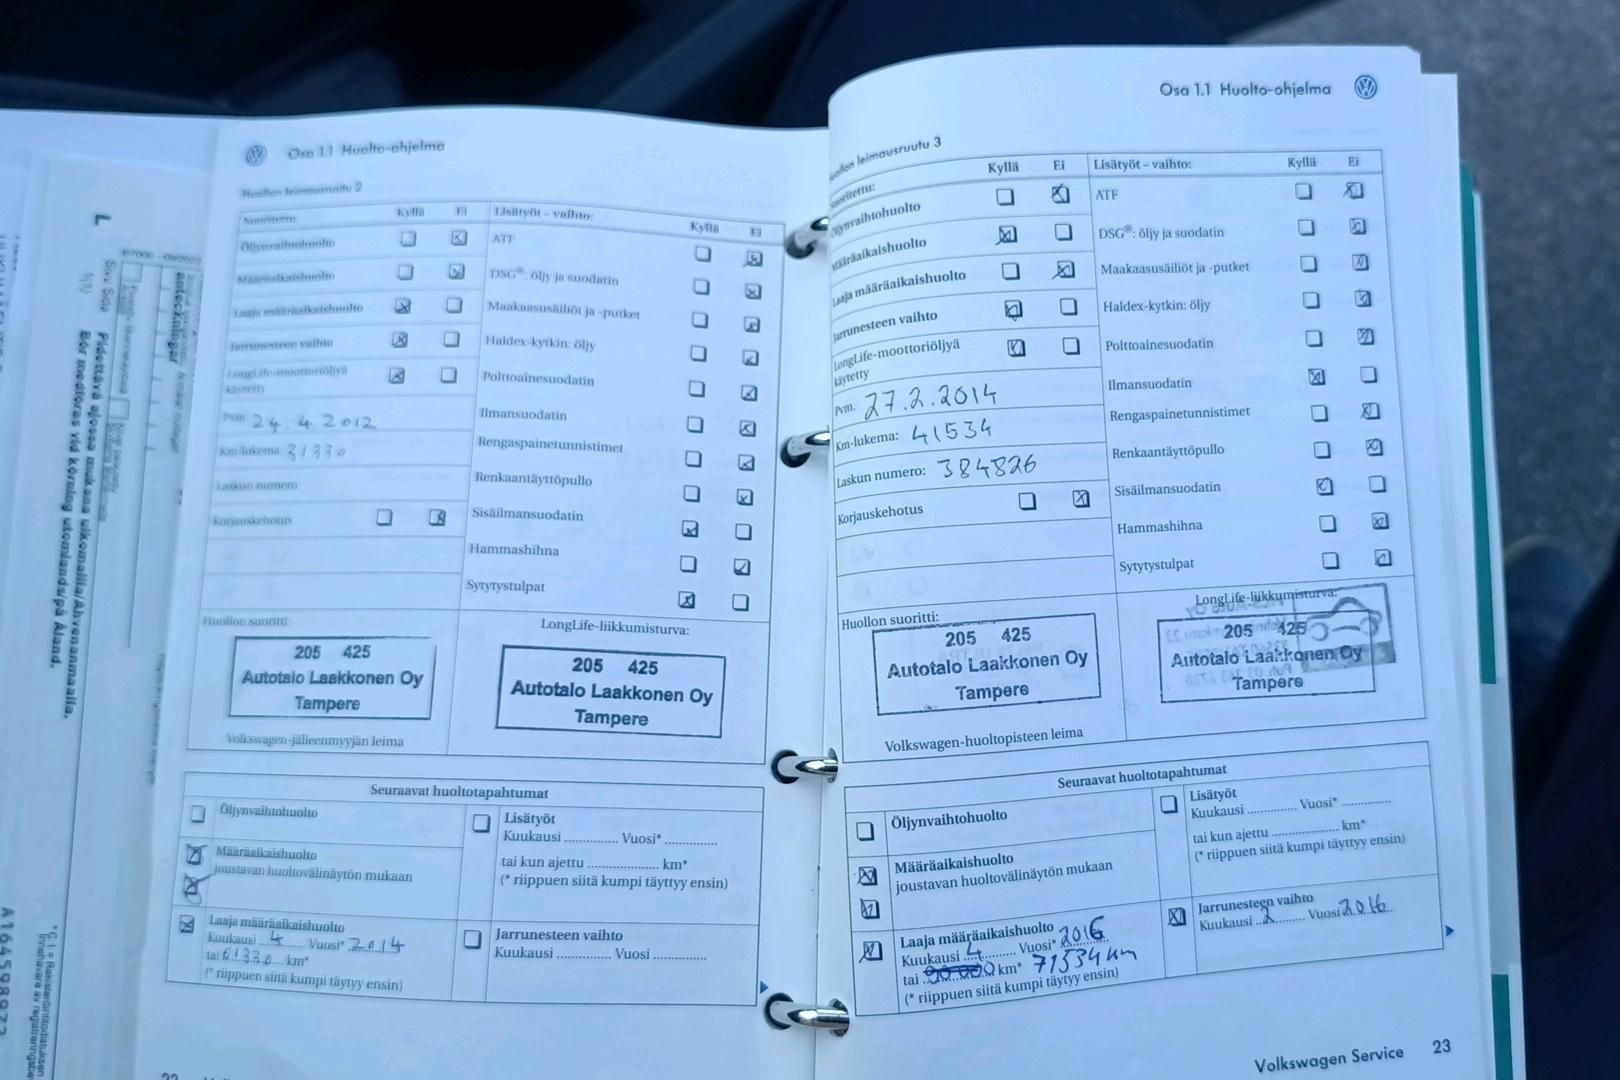 Osa 1.1 Huolto-ohjelma
Huollon leimausruutu 2
Suoritettu: Kyllä Ei Lisätyöt – vaihto: Kyllä Ei
Öljynvaihtohuolto
Määräaikaishuolto
Laaja määräaikaishuolto
Jarrunesteen vaihto
LongLife-moottoriöljyä
käytetty
Pvm. 24.4.2012
Km-lukema: 31330
Laskun numero:
Korjauskehotus
ATF
DSG®: öljy ja suodatin
Maakaasusäiliöt ja -putket
Haldex-kytkin: öljy
Polttoainesuodatin
Ilmansuodatin
Rengaspainetunnistimet
Renkaantäyttöpullo
Sisäilmansuodatin
Hammashihna
Sytytystulpat
Huollon suoritti:
205 425
Autotalo Laakkonen Oy
Tampere
Volkswagen-jälleenmyyjän leima
LongLife-liikkumisturva:
205 425
Autotalo Laakkonen Oy
Tampere
Seuraavat huoltotapahtumat
Öljynvaihtohuolto
Määräaikaishuolto
joustavan huoltovälinäytön mukaan
Laaja määräaikaishuolto
Kuukausi 4 Vuosi* 2014
tai 61330 km*
(* riippuen siitä kumpi täytyy ensin)
Lisätyöt
Kuukausi ............ Vuosi* ............
tai kun ajettu ................. km*
(* riippuen siitä kumpi täyttyy ensin)
Jarrunesteen vaihto
Kuukausi ............ Vuosi ............
Osa 1.1 Huolto-ohjelma
leimausruutu 3
Suoritettu: Kyllä Ei Lisätyöt – vaihto: Kyllä Ei
Öljynvaihtohuolto
Määräaikaishuolto
Laaja määräaikaishuolto
Jarrunesteen vaihto
LongLife-moottoriöljyä
käytetty
Pvm. 27.2.2014
Km-lukema: 41534
Laskun numero: 384826
Korjauskehotus
ATF
DSG®: öljy ja suodatin
Maakaasusäiliöt ja -putket
Haldex-kytkin: öljy
Polttoainesuodatin
Ilmansuodatin
Rengaspainetunnistimet
Renkaantäyttöpullo
Sisäilmansuodatin
Hammashihna
Sytytystulpat
Huollon suoritti:
205 425
Autotalo Laakkonen Oy
Tampere
Volkswagen-huoltopisteen leima
LongLife-liikkumisturva:
205 425
Autotalo Laakkonen Oy
Tampere
Seuraavat huoltotapahtumat
Öljynvaihtohuolto
Määräaikaishuolto
joustavan huoltovälinäytön mukaan
Laaja määräaikaishuolto
Kuukausi 4 Vuosi* 2016
tai km* 71534 km
(* riippuen siitä kumpi täytyy ensin)
Lisätyöt
Kuukausi .............. Vuosi* ..............
tai kun ajettu ................... km*
(* riippuen siitä kumpi täyttyy ensin)
Jarrunesteen vaihto
Kuukausi 2 Vuosi 2016
Volkswagen Service 23
L
Pidettävä ajossa mukana ulkomailla/Ahvenanmaalla.
Bör medföras vid körning utomlands/på Åland.